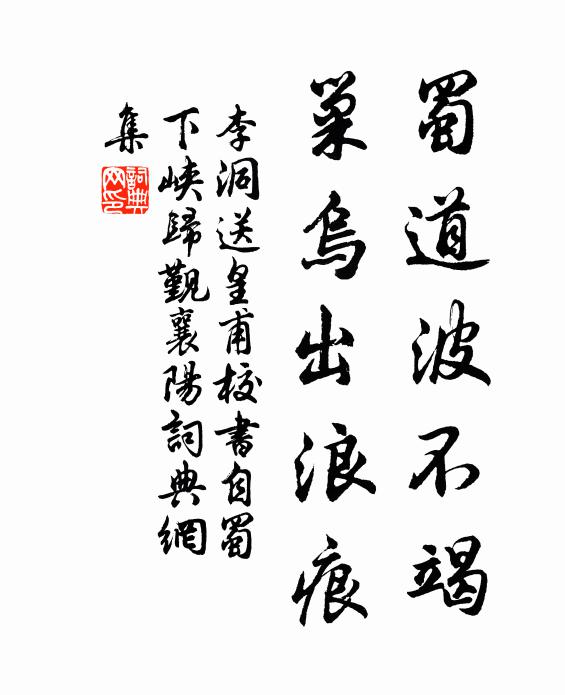 蜀道波不竭
巢烏出浪痕
李洞送皇甫校書自蜀
下峽歸覲襄陽詞典網
集
詞典
网印